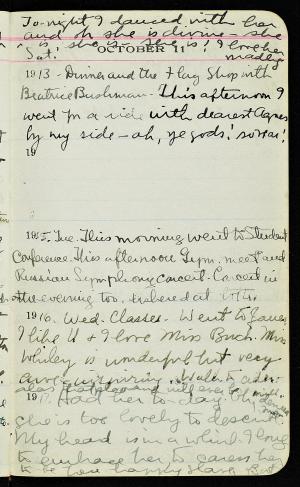 To-night I danced with her
and oh she is divine - she
is, she is - she is! I love her
Sat. OCTOBER 1 madly
1913 - Dinner and the Flag Shop with
Beatrice Bushman - This afternoon I
went for a ride with dearest Agnes
by my side - ah, ye gods!
19
1915. Tue. This morning went to Student
Conference. This afternoon Gym. meet and
Russian Symphony concert. Concert in
the evening too. Ushered at both.
1916. Wed. Classes. Went to
I like it & I love Miss Bush. Miss
Whiley is wonderful but very
awe inspiring.
1917. Had her to-day. Oh
she is too lovely to describe
My head is in a whirl. I long
to embrace her, to caress her
to be her happy slave. But